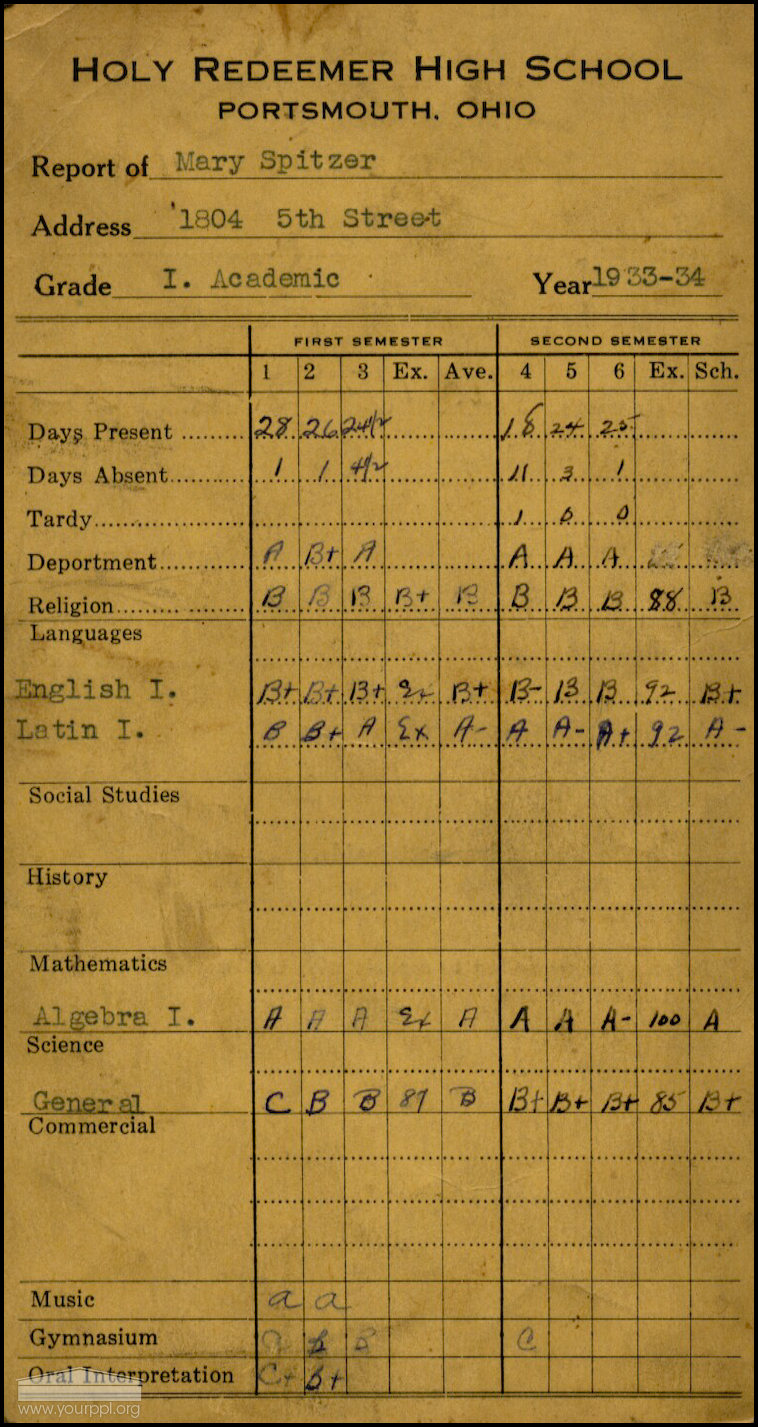 HOLY REDEEMER HIGH SCHOOL
PORTSMOUTH, OHIO
Report of Mary Spitzer
Address 1804 5th Street
Grade I. Academic Year 1933-34
FIRST SEMESTER SECOND SEMESTER
1 2 3 Ex. Ave. 4 5 6 Ex. Sch.
Days Present 28 26 24 1/2 18 24 25
Days Absent 1 1 4 1/2 11 3 1
Tardy 1 0 0
Deportment A B+ A A A A
Religion B B B B+ B B B B 88 B
Languages
English I. B+ B+ B+ Ex B+ B- B B 92 B+
Latin I. B B+ A Ex A- A A- A+ 92 A-
Social Studies
History
Mathematics
Algebra I. A A A Ex A A A A- 100 A
Science
General C B B 87 B B+ B+ B+ 85 B+
Commercial
Music a a
Gymnasium B B C
Oral Interpretation C+ B+
www.yourppl.org